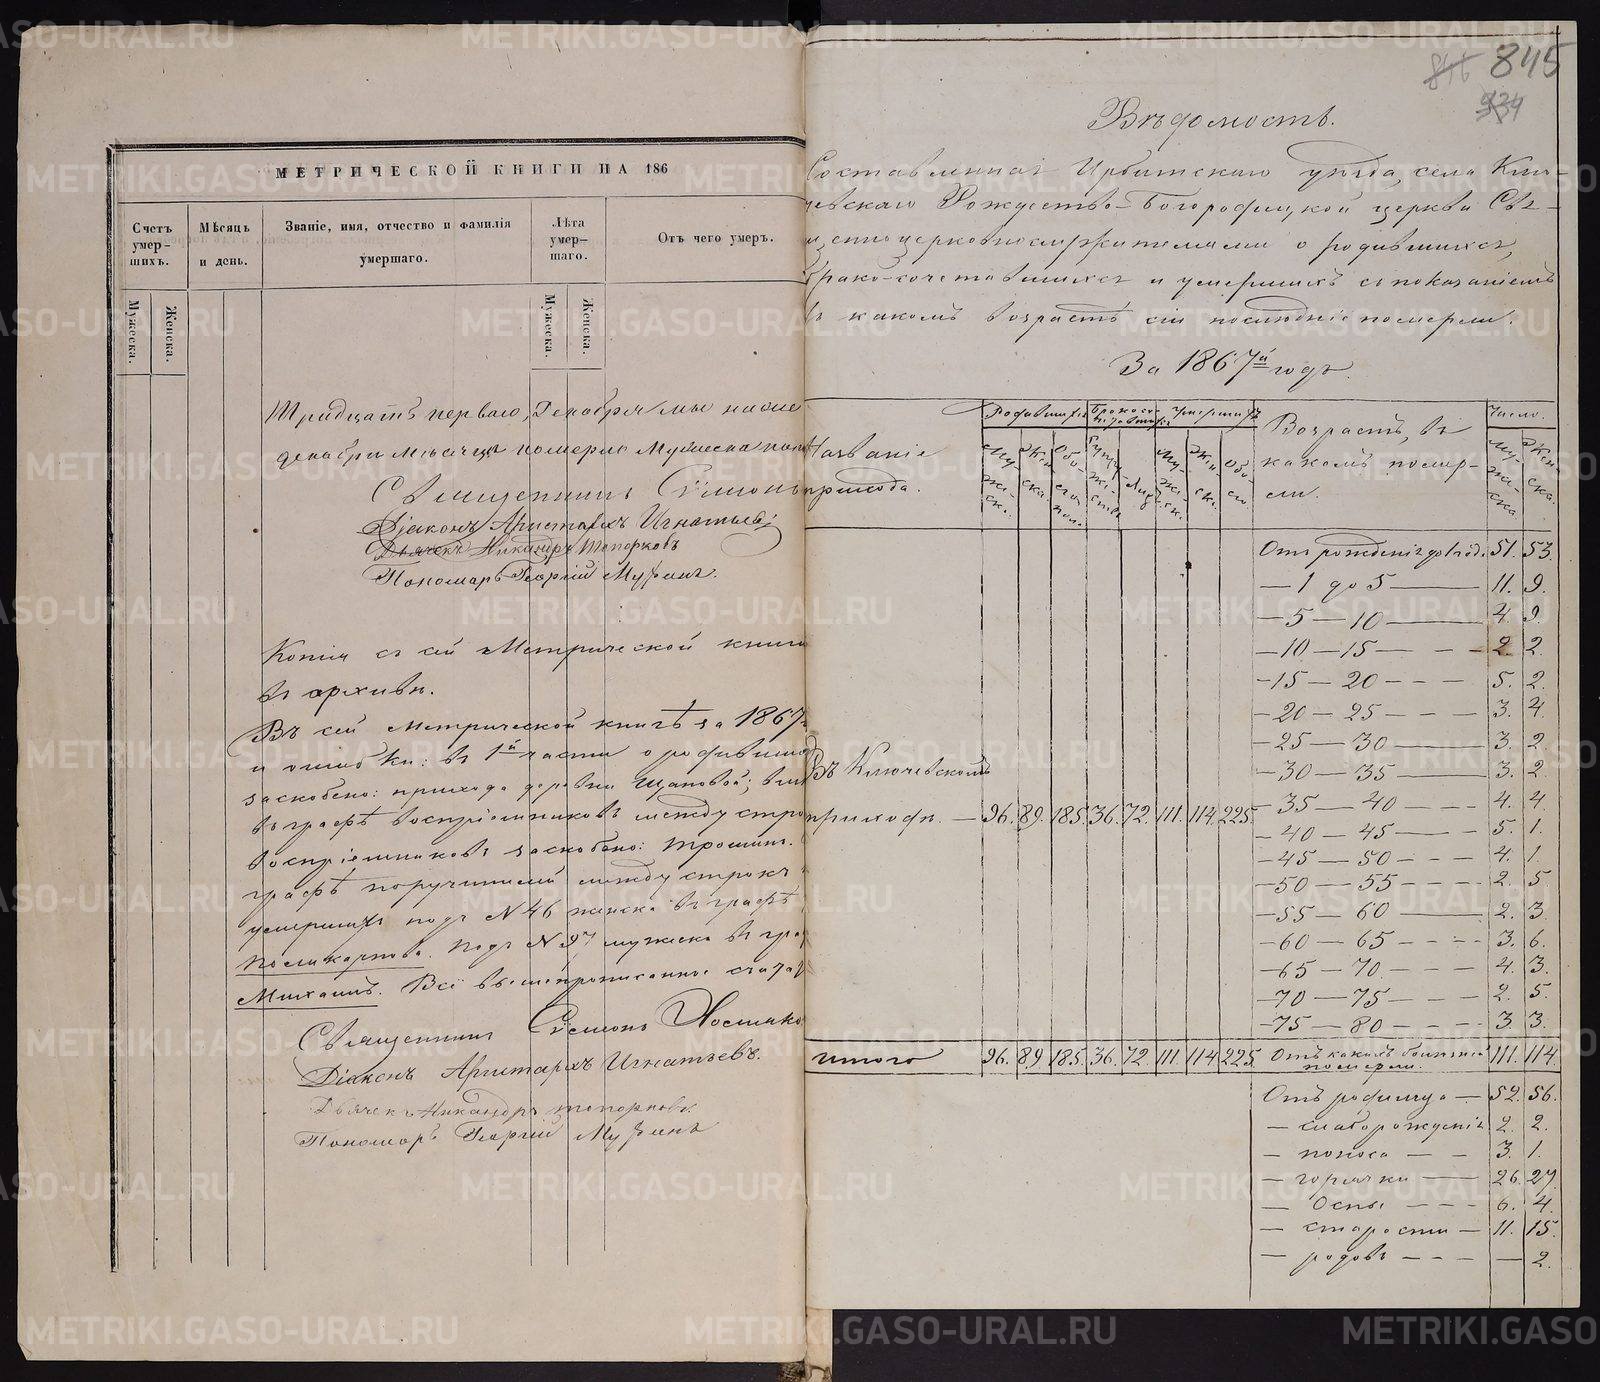 МЕТРИЧЕСКОЙ КНИГИ НА 186
Счетъ умер-шихъ.
Мѣсяцъ и день.
Званіе, имя, отчество и фамилія умершаго.
Лѣта умер-шаго.
Отъ чего умеръ.
Мужеска.
Женска.
Мужеска.
Женска.
Тридцать перваго, Декабря мы ниже
декабрѣ мѣсяцѣ померло Мужеска пола
Священникъ Симонъ
Діаконъ Аристархъ Игнатьевъ
Дьячекъ Никандръ Топорковъ
Пономарь Георгій Мухинъ.
Копія съ сей Метрической книги
въ архивѣ.
Въ сей Метрической книгѣ за 1867
и ошибки: въ 1й части о родившихся
заскоблено: прихода деревни Щаповой;
въ графѣ воспріемниковъ между стро
воспріемниковъ заскоблено: Трошин.
графѣ поручителей между строкъ
умершихъ подъ N 46 женска въ графѣ
Поликарпова. Подъ N 97 мужеска въ гра
Михаилъ. Всё вышепрописанное счита
Священникъ Симонъ Хосмако
Діаконъ Аристархъ Игнатьевъ.
Дьячекъ Никандръ Топорковъ.
Пономарь Георгій Мухинъ
846 845
934
Вѣдомость.
Составленная Ирбитскаго уѣзда, села Клю-
чевскаго Рождество-Богородицкой церкви Свя-
щенноцерковнослужителями о родившихся,
брако-сочетавшихся и умершихъ съ показаніемъ
въ какомъ возрастѣ сіи послѣдніе померли.
За 1867й годъ.
Названіе прихода.
Родившихся
Бракосочетавшихся
Умершихъ
Возрастъ, въ какомъ померли.
Число.
Мужеска.
Женска.
Обоего пола.
Супружествъ
Лицъ
Мужеск.
Женск.
Обоего.
Мужеска
Женска.
Отъ рожденія до 1 года. 51. 53.
— 1 до 5 — 11. 9.
— 5 — 10 — 4. 9.
— 10 — 15 — 2. 2.
— 15 — 20 — 5. 2.
— 20 — 25 — 3. 4.
— 25 — 30 — 3. 2
— 30 — 35 — 3. 2
— 35 — 40 — 4. 4
— 40 — 45 — 5. 1.
— 45 — 50 — 4. 1.
— 50 — 55 — 2. 5.
— 55 — 60 — 2. 3.
— 60 — 65 — 3. 6.
— 65 — 70 — 4. 3.
— 70 — 75 — 2. 5.
— 75 — 80 — 3. 3.
Въ Ключевскомъ
приходѣ. — 96. 89. 185. 36. 72. 111. 114. 225.
Итого 96. 89. 185. 36. 72. 111. 114. 225. Отъ какихъ болѣзней померли. 111. 114.
Отъ родимца — 52. 56.
— слаборожденія 2. 2.
— поноса — 3. 1.
— горячки — 26. 27.
— Оспы — 6. 4.
— старости — 11. 15.
— родовъ — — 2.
METRIKI.GASO-URAL.RU